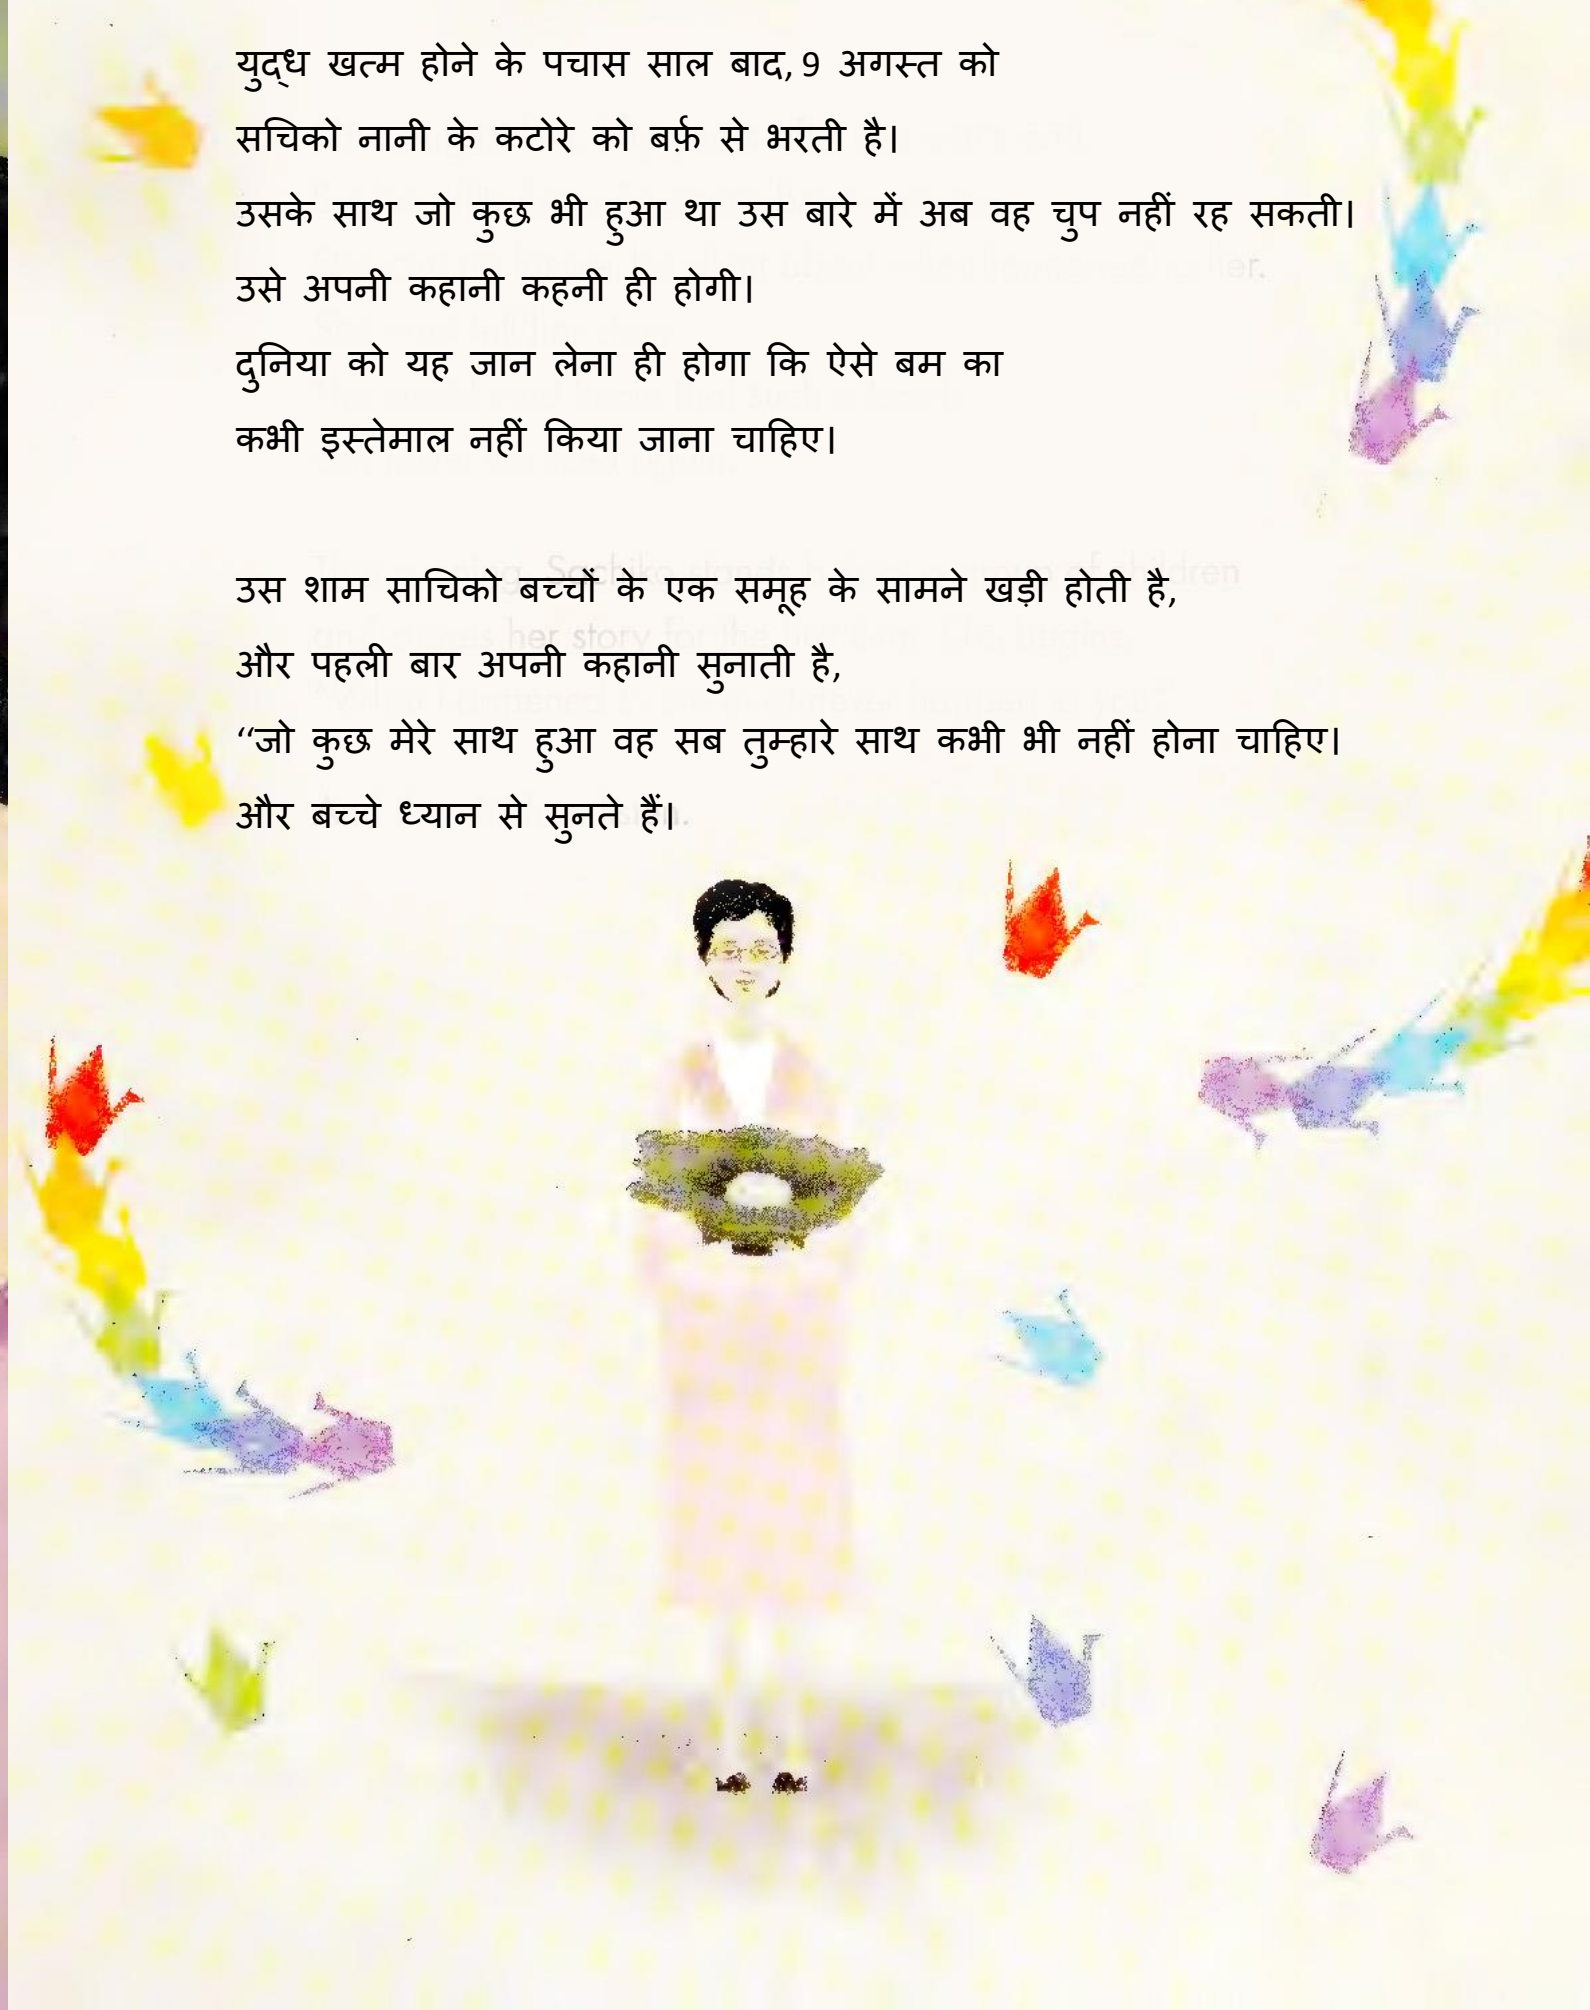 युद्ध खत्म होने के पचास साल बाद, 9 अगस्त को
सचिको नानी के कटोरे को बर्फ़ से भरती है।
उसके साथ जो कुछ भी हुआ था उस बारे में अब वह चुप नहीं रह सकती।
उसे अपनी कहानी कहनी ही होगी।
दुनिया को यह जान लेना ही होगा कि ऐसे बम का
कभी इस्तेमाल नहीं किया जाना चाहिए।
उस शाम साचिको बच्चों के एक समूह के सामने खड़ी होती है,
और पहली बार अपनी कहानी सुनाती है,
“जो कुछ मेरे साथ हुआ वह सब तुम्हारे साथ कभी भी नहीं होना चाहिए।
और बच्चे ध्यान से सुनते हैं।